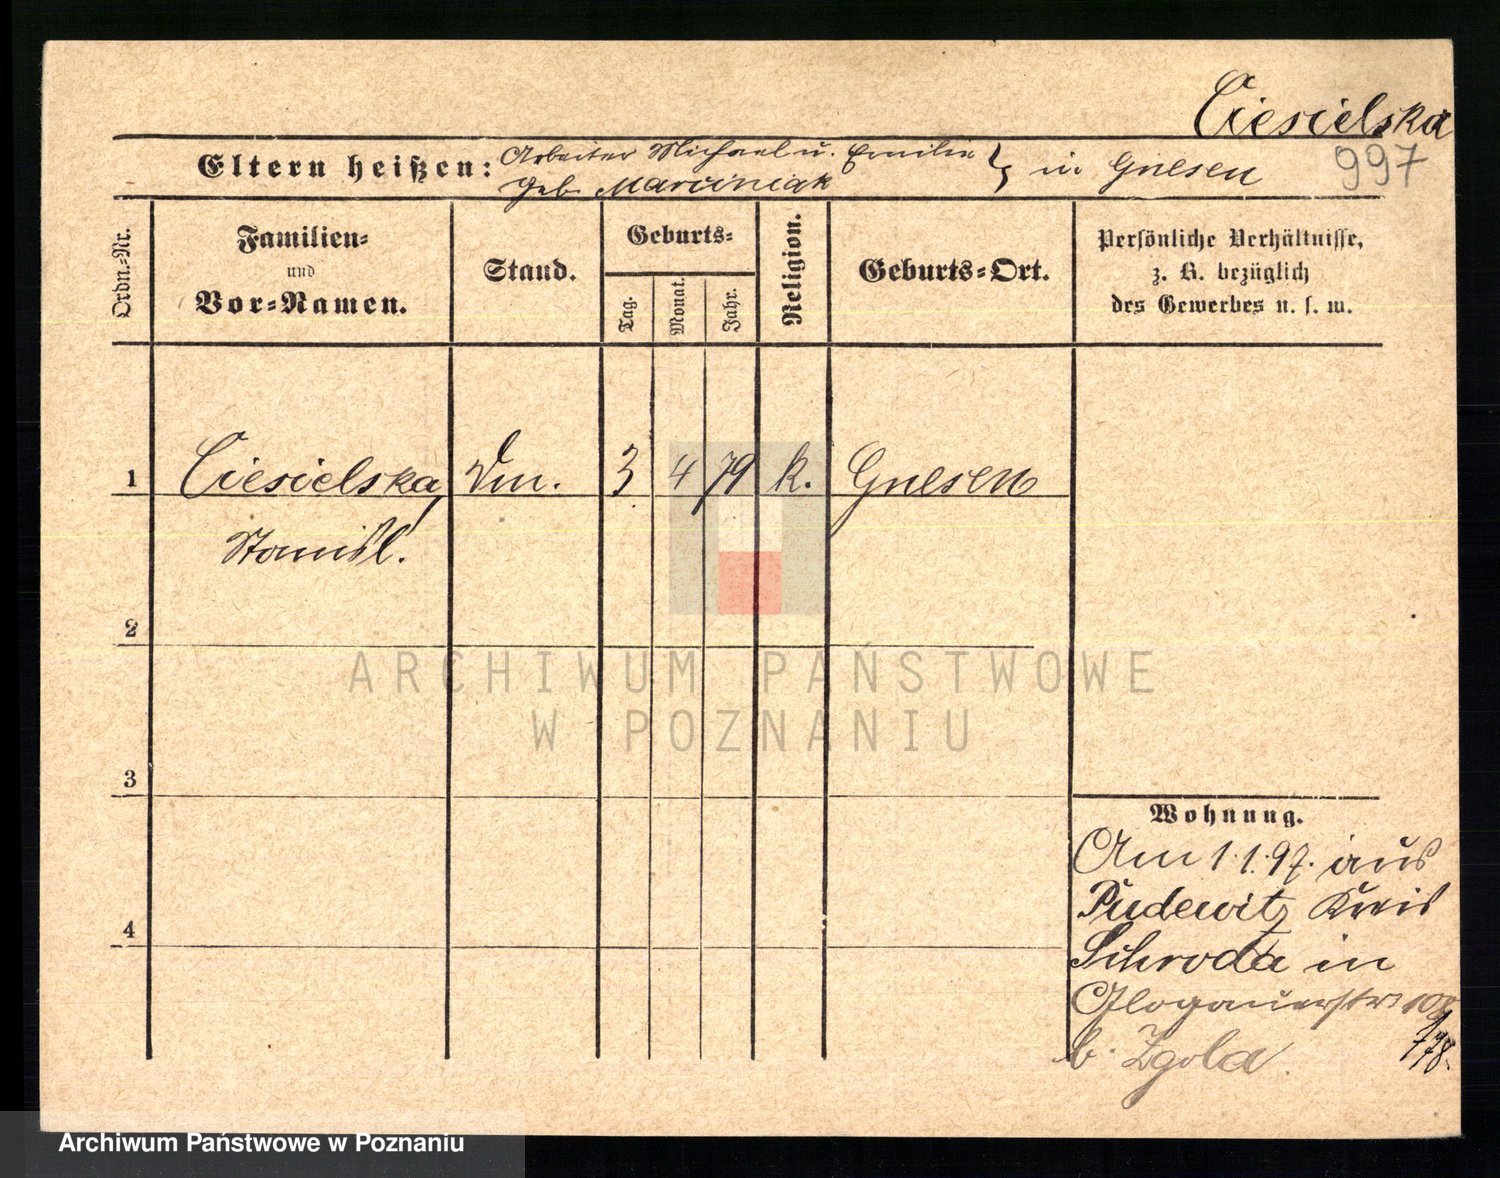 Ciesielska
997
Eltern heißen: Arbeiter Michael u. Emilie
geb Marciniak } in Gnesen
Ordn.-Nr.
Familien-
und
Vor-Namen.
Stand.
Geburts-
Tag.
Monat.
Jahr.
Religion.
Geburts-Ort.
Persönliche Verhältnisse,
z. B. bezüglich
des Gewerbes u. s. w.
1 Ciesielska, 3 4 79 k. Gnesen
Stanisl.
2
ARCHIWUM PAŃSTWOWE
W POZNANIU
3
Wohnung.
Am 1.1.97. aus
Pudewitz Kreis
4
Schroda in
Glogauerstr
b. Zgola.
Archiwum Państwowe w Poznaniu